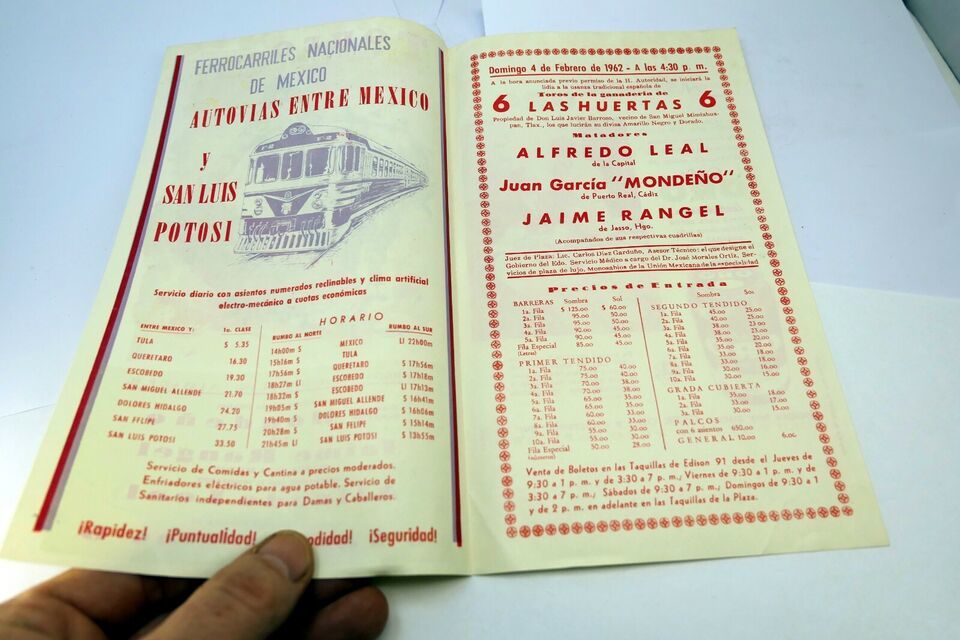 FERROCARRILES NACIONALES
DE MEXICO
AUTOVIAS ENTRE MEXICO
y
SAN LUIS
POTOSI
Servicio diario con asientos numerados reclinables y clima artificial
electro-mecánico a cuotas económicas
HORARIO
ENTRE MEXICO Y: 1a. CLASE
TULA $ 5.35
QUERETARO 16.30
ESCOBEDO 19.30
SAN MIGUEL ALLENDE 21.70
DOLORES HIDALGO 24.20
SAN FELIPE 27.75
SAN LUIS POTOSI 33.50
RUMBO AL NORTE RUMBO AL SUR
14h00m S MEXICO Ll 22h00m
15h16m S TULA
17h56m S QUERETARO S 17h56m
18h27m Ll ESCOBEDO S 17h18m
18h32m S ESCOBEDO Ll 17h13m
19h05m S SAN MIGUEL ALLENDE S 16h41m
19h40m S DOLORES HIDALGO S 16h06m
20h28m S SAN FELIPE S 15h14m
21h45m Ll SAN LUIS POTOSI S 13h55m
Servicio de Comidas y Cantina a precios moderados.
Enfriadores eléctricos para agua potable. Servicio de
Sanitarios independientes para Damas y Caballeros.
¡Rapidez! ¡Puntualidad! odidad! ¡Seguridad!
Domingo 4 de Febrero de 1962 - A las 4:30 p. m.
A la hora anunciada previo permiso de la H. Autoridad, se iniciará la
lidia a la usanza tradicional española de
Toros de la ganadería de
6 LAS HUERTAS 6
Propiedad de Don Luis Javier Barroso, vecino de San Miguel Mimiahua-
pan, Tlax., los que lucirán su divisa Amarillo Negro y Dorado.
Matadores
ALFREDO LEAL
de la Capital
Juan García "MONDEÑO"
de Puerto Real, Cádiz
JAIME RANGEL
de Jasso, Hgo.
(Acompañados de sus respectivas cuadrillas)
Juez de Plaza: Lic. Carlos Díez Garduño, Asesor Técnico: el que designe el
Gobierno del Edo. Servicio Médico a cargo del Dr. José Morales Ortiz. Ser-
vicios de plaza de lujo. Monosabios de la Unión Mexicana de la especialidad
Precios de Entrada
BARRERAS Sombra Sol
1a. Fila $ 125.00 $ 60.00
2a. Fila 95.00 50.00
3a. Fila 95.00 50.00
4a. Fila 90.00 45.00
5a. Fila 90.00 45.00
Fila Especial 85.00 45.00
(Letras)
PRIMER TENDIDO
1a. Fila 75.00 40.00
2a. Fila 75.00 40.00
3a. Fila 70.00 38.00
4a. Fila 70.00 38.00
5a. Fila 65.00 35.00
6a. Fila 65.00 35.00
7a. Fila 60.00 33.00
8a. Fila 60.00 33.00
9a. Fila 55.00 30.00
10a. Fila 55.00 30.00
Fila Especial 50.00 28.00
Sombra Sol
SEGUNDO TENDIDO
1a. Fila 45.00 25.00
2a. Fila 40.00 25.00
3a. Fila 38.00 23.00
4a. Fila 38.00 23.00
5a. Fila
6a. Fila 35.00 20.00
7a. Fila 33.00 18.00
8a. Fila 33.00 18.00
9a. Fila 30.00 16.00
10a. Fila 30.00 15.00
GRADA CUBIERTA
1a. Fila 35.00 18.00
2a. Fila 33.00 17.00
3a. Fila 30.00 15.00
PALCOS
con 6 asientos 650.00
GENERAL 10.00 6.00
Venta de Boletos en las Taquillas de Edison 91 desde el Jueves de
9:30 a 1 p. m. y de 3:30 a 7 p. m.; Viernes de 9:30 a 1 p. m. y de
3:30 a 7 p. m.; Sábados de 9:30 a 7 p. m.; Domingos de 9:30 a 1
y de 2 p. m. en adelante en las Taquillas de la Plaza.